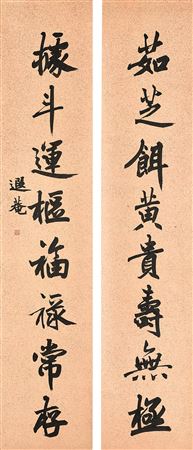 茹芝餌黄貴壽無極
據斗運樞福祿常存
遐菴